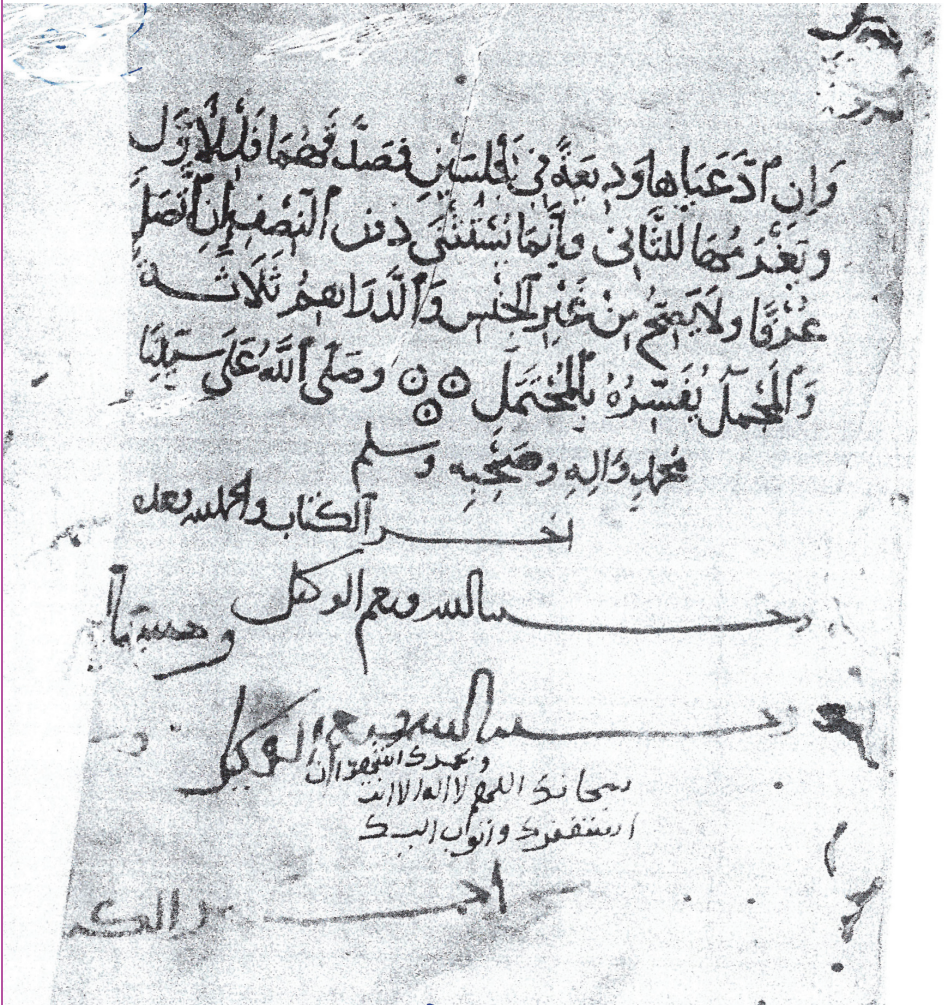 وَإِنِ ٱدَّعَيَاهَا وَدِيعَةً فِي مَجْلِسَيْنِ فَصَدَّقَهُمَا فَلِلْأَوَّلِ
وَيَغْرَمُهَا لِلثَّانِي وَإِنَّمَا يُسْتَثْنَى دُونَ ٱلنِّصْفِ إِنِ ٱتَّصَلَ
عُرْفًا وَلَا يَصِحُّ مِنْ غَيْرِ ٱلْجِنْسِ وَٱلدَّرَاهِمُ ثَلَاثَةٌ
وَٱلْمُجْمَلُ يُفَسِّرُهُ بِٱلْمُحْتَمَلِ وَصَلَّى ٱللَّهُ عَلَى سَيِّدِنَا
مُحَمَّدٍ وَآلِهِ وَصَحْبِهِ وَسَلَّمَ
اخر الكتاب والحمد لله
وحسبنا الله ونعم الوكيل وحسبنا
وحسبنا الله ونعم الوكيل
سبحانك اللهم وبحمدك اشهد ان
لا اله الا انت
استغفرك واتوب اليك
اخر الكـ